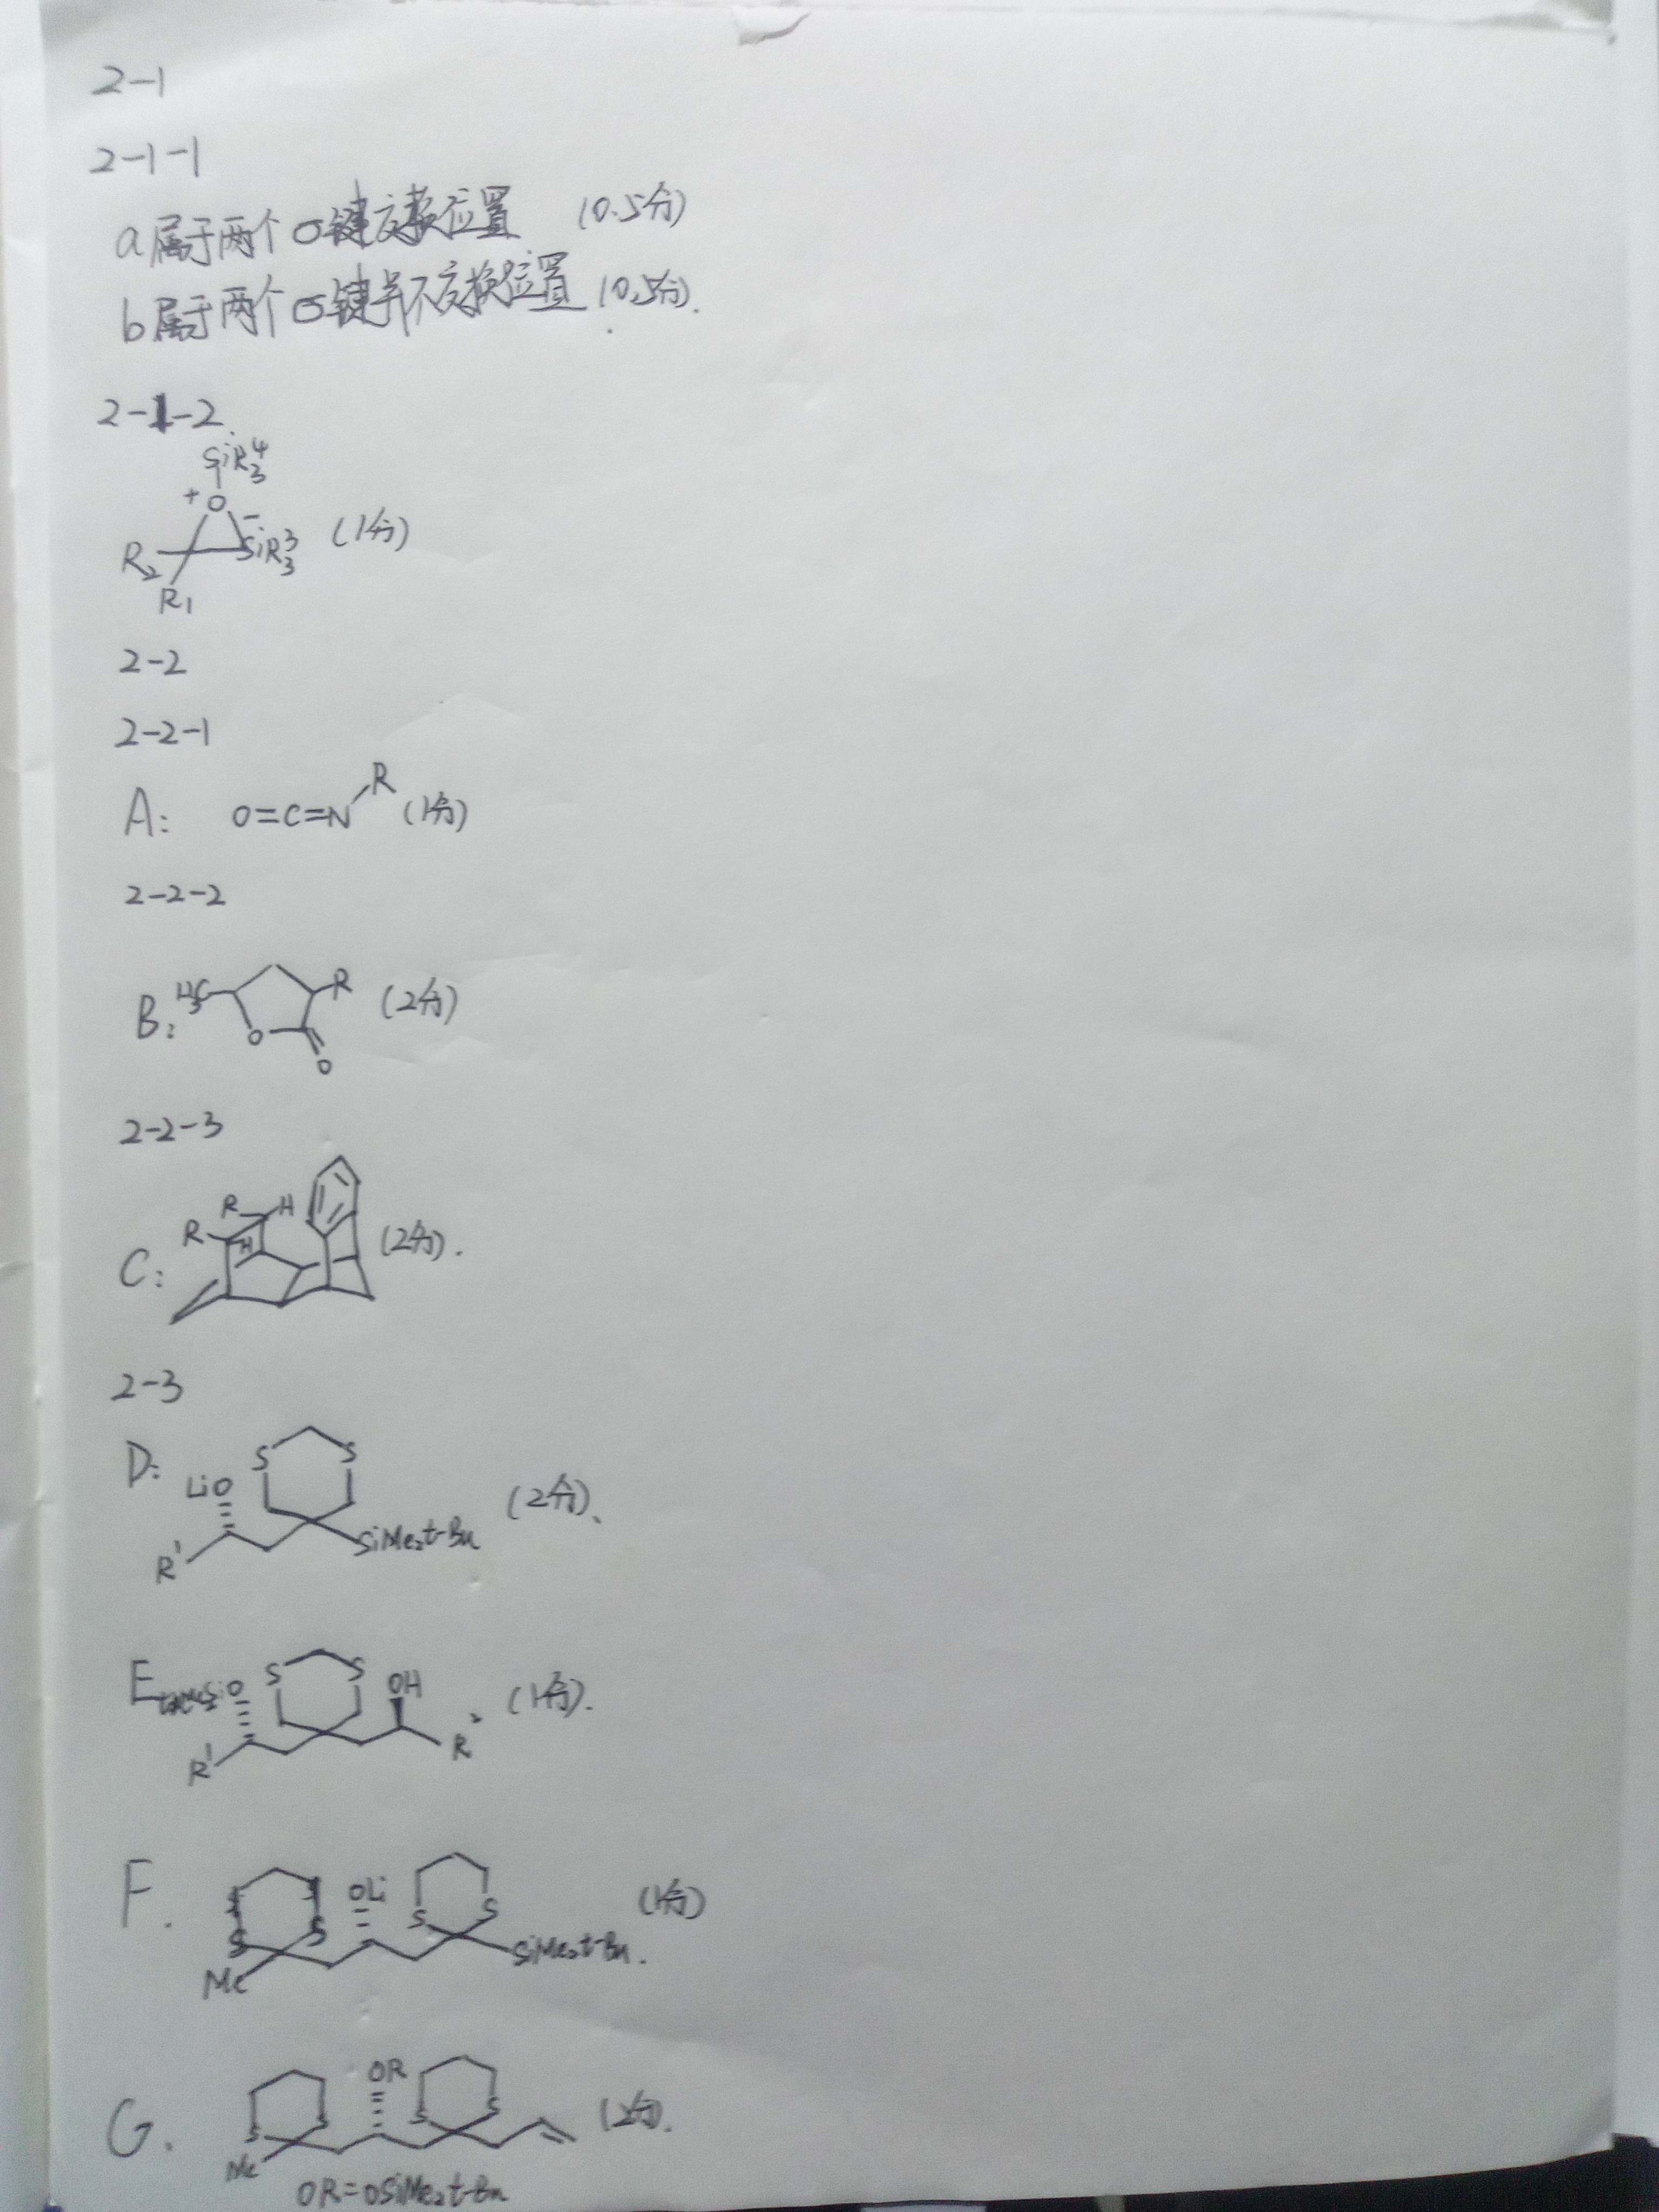 2-1
2-1-1
a属于两个σ键交换位置 (0.5分)
b属于两个σ键并不交换位置 (0.5分).
2-1-2.
SiR₃⁴
+O
R₂ -SiR₃³ (1分)
R₁
2-2
2-2-1
A: O=C=N R (1分)
2-2-2
B: H₃C R (2分)
O
O
2-2-3
R H
R H
C: (2分).
2-3
D: S S
LiO (2分)、
R' SiMe₂t-Bu
E S S OH (1分).
R' R²
F. OLi (1分)
S S S S
Me SiMe₂t-Bu.
G. OR (2分).
S S S S
Me
OR=OSiMe₂t-Bu